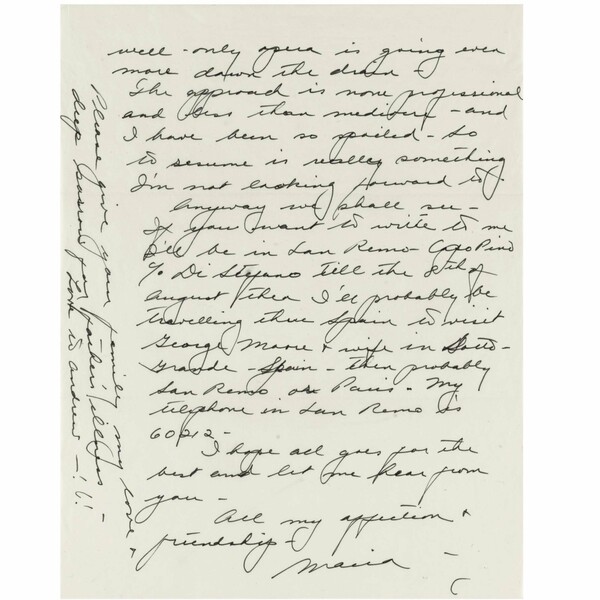 well - only opera is going even
more down the drain -
The approach is none professional
and less than mediocre - and
I have been so spoiled - so
to resume is really something
I'm not looking forward to -
Anyway we shall see -
If you want to write to me
I'll be in San Remo - Capo Pino
c/o Di Stefano till the 8th of
August then I'll probably be
travelling thru Spain to visit
George Moore + wife in Soto-
Grande - Spain - then probably
San Remo or Paris - My
telephone in San Remo is
60212 -
I hope all goes for the
best and let me hear from
you -
All my affection +
friendship -
Maria -
Please give your family my love +
deep for father's illness -
Love to Andrew -